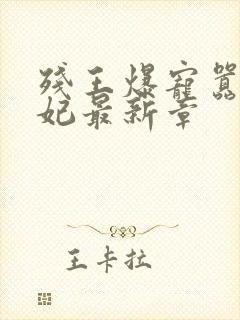 残王爆寵囂
妃最新章
王卡拉